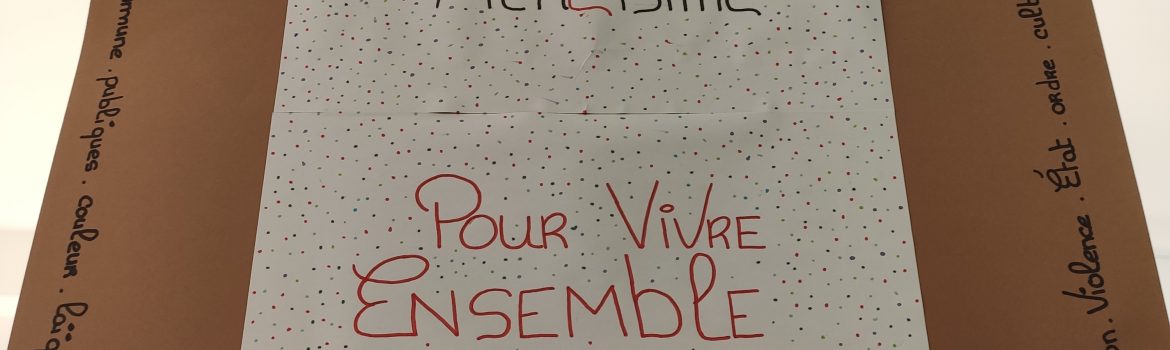 Pour Vivre
Ensemble
mmune . publiques . couleur . laï
on . Violence . État . ordre . cult